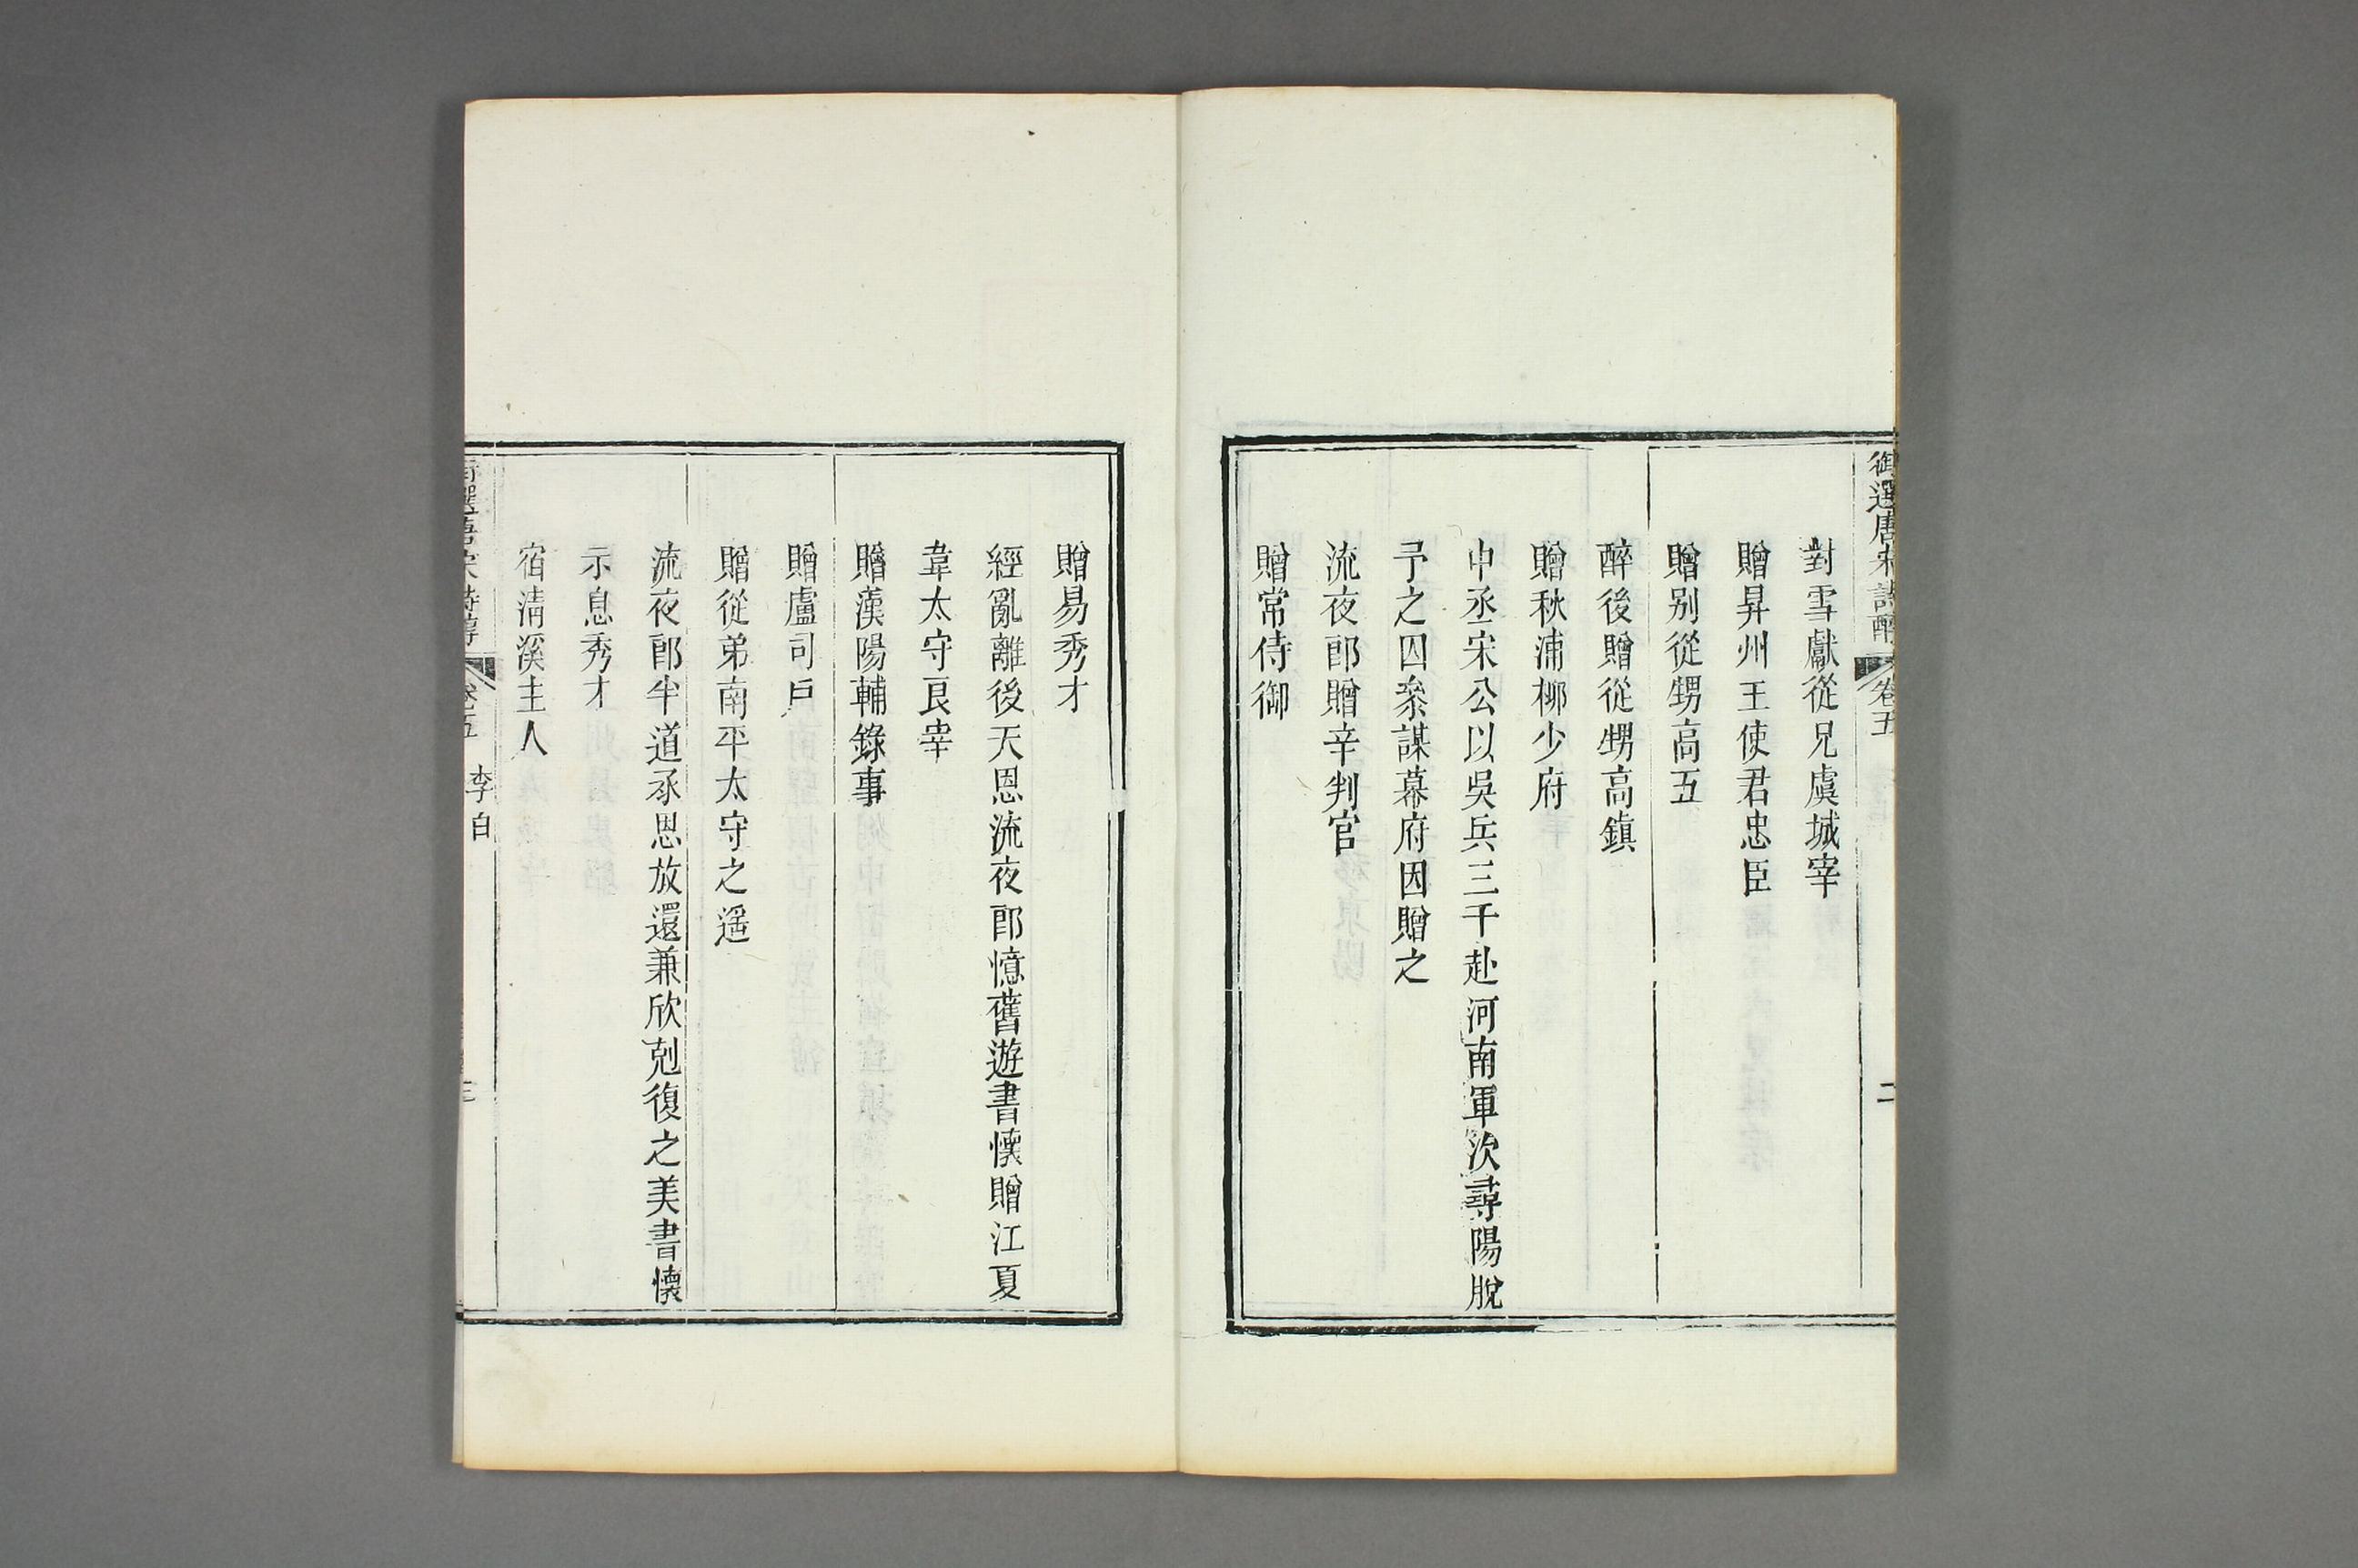 御選唐宋詩醇 卷五 二
對雪獻從兄虞城宰
贈昇州王使君忠臣
贈别從甥高五
醉後贈從甥高鎮
贈秋浦柳少府
中丞宋公以吳兵三千赴河南軍次尋陽脫
予之囚叅謀幕府因贈之
流夜郎贈辛判官
贈常侍御
贈易秀才
經亂離後天恩流夜郎憶舊遊書懷贈江夏
韋太守良宰
贈漢陽輔錄事
贈盧司戶
贈從弟南平太守之遥
流夜郎半道承恩放還兼欣剋復之美書懷
示息秀才
宿清溪主人
御選唐宋詩醇 卷五 李白 三